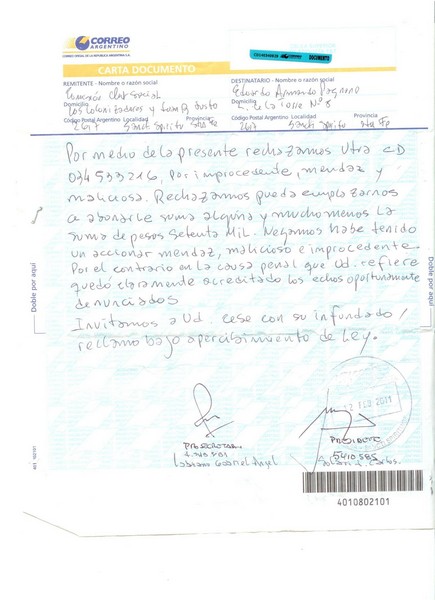 CORREO
ARGENTINO
CORREO OFICIAL DE LA REPUBLICA ARGENTINA S.A.
DOCUMENTO
CARTA DOCUMENTO
REMITENTE - Nombre o razón social
DESTINATARIO - Nombre o razón social
Comisión Club Social
Eduardo Armando
Domicilio
Domicilio
Los Colonizadores y Juan B. Justo
L. de la Torre Nº 8
Código Postal Argentino Localidad Provincia
Código Postal Argentino Localidad Provincia
2617 Sancti Spiritu Sta Fe
2617 Sancti Spiritu Sta Fe
Por medio de la presente rechazamos Vtra CD
034533216, Por improcedente, mendaz y
maliciosa. Rechazamos pueda emplazarnos
a abonarle suma alguna y mucho menos la
suma de pesos setenta MIL. Negamos habe tenido
un accionar mendaz, malicioso e improcedente.
Por el contrario en la causa penal que Ud. refiere
quedó claramente acreditado los echos oportunamente
denunciados
Invitamos a Ud. cese con su infundado /
reclamo bajo apercibimiento de Ley.
Doble por aquí
Doble por aquí
12 FEB 2011
PROSECRETAR.
PRESIDENTE
Gabriel Angel
5410585
Carlos.
4010802101